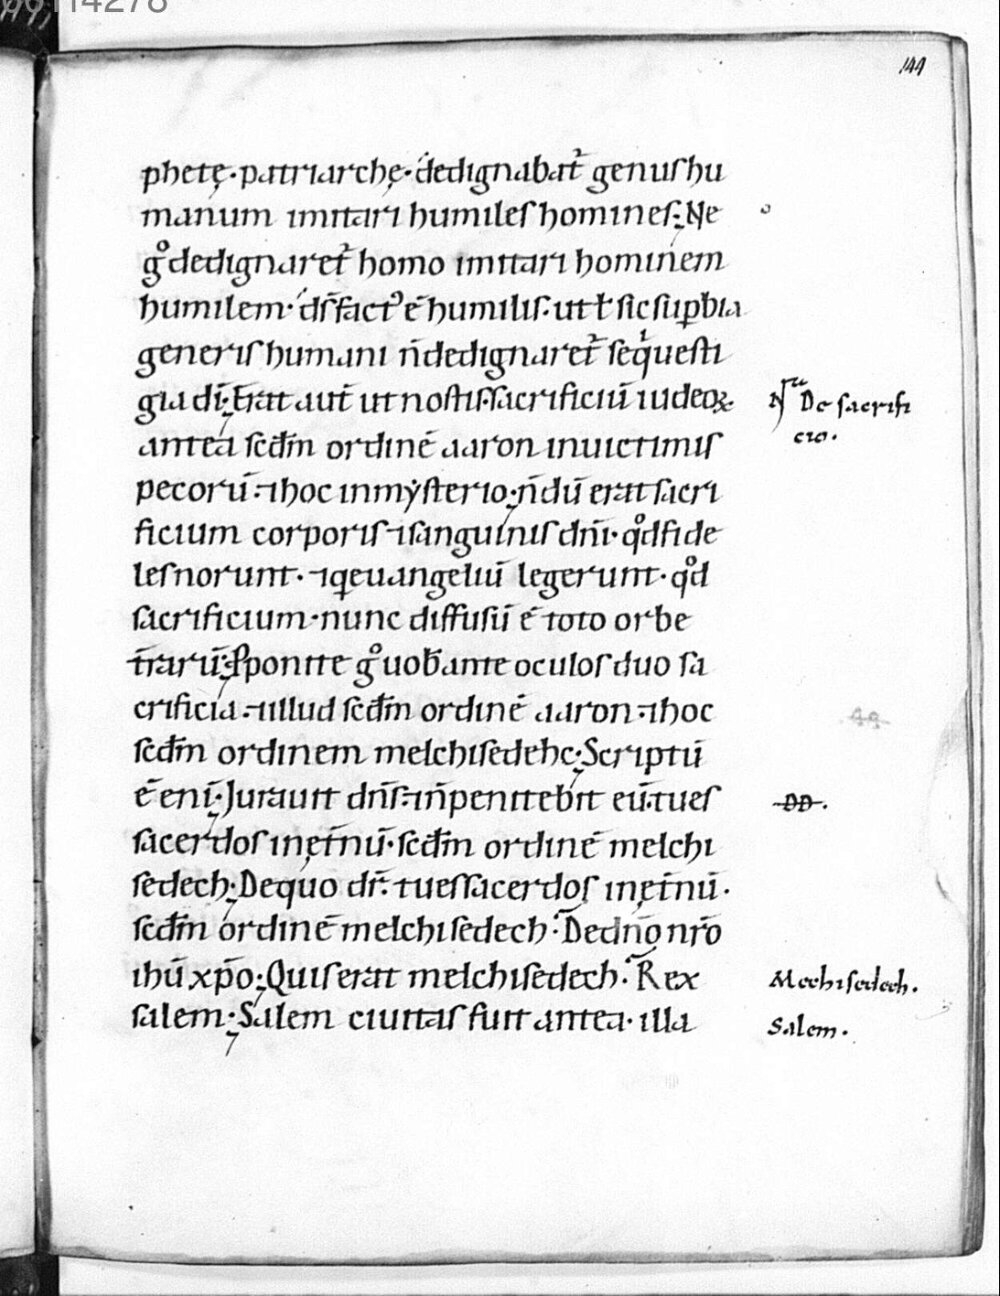 144
phetę·patriarchę·dedignabat᷑ genus hu
manum imitari humiles homines; Ne
gͦ dedignaret᷑ homo imitari hominem
humilem· ds̄ factꝰ ē humilis· ut ł sic suꝑbia
generis humani n̄ dedignaret᷑ seqͥ uesti
gia dī; Erat aut̄ ut nostis· sacrificiū iudeoꝝ·
antea scd̄m ordinē aaron inuictimis
pecorū·⁊hoc inmẏsterio; n̄dū erat sacri
ficium corporis ⁊sanguinis dn̄i· qͦd fide
les norunt· ⁊q euangeliū legerunt· qͦd
sacrificium· nunc diffusū ē toto orbe
t̄rarū; Ꝓponite gͦ uob̄ ante oculos duo sa
crificia·⁊illud scd̄m ordinē aaron·⁊hoc
scd̄m ordinem melchisedehc; Scriptū
ē enī; Jurauit dn̄s·⁊n̄ penitebit eū· tu es
sacerdos inęt̄nū· scd̄m ordinē melchi
sedech; De quo dr̄· tu es sacerdos inęt̄nū·
scd̄m ordinē melchisedech· De dn̄o nr̄o
ihū xp̄o; Quis erat melchisedech· Rex
salem; Salem ciuitas fuit antea· illa
De sacrifi
cio·
DD·
Mechisedech·
Salem·
44